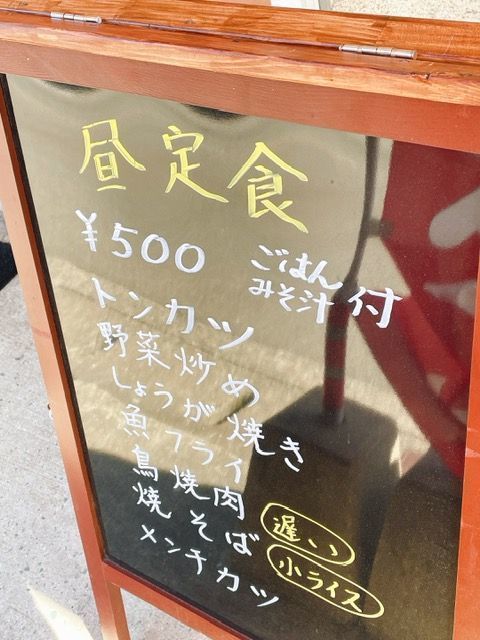 昼定食
¥500 ごはん
みそ汁 付
トンカツ
野菜炒め
しょうが焼き
魚フライ
鳥焼肉
焼そば 遅い
メンチカツ 小ライス